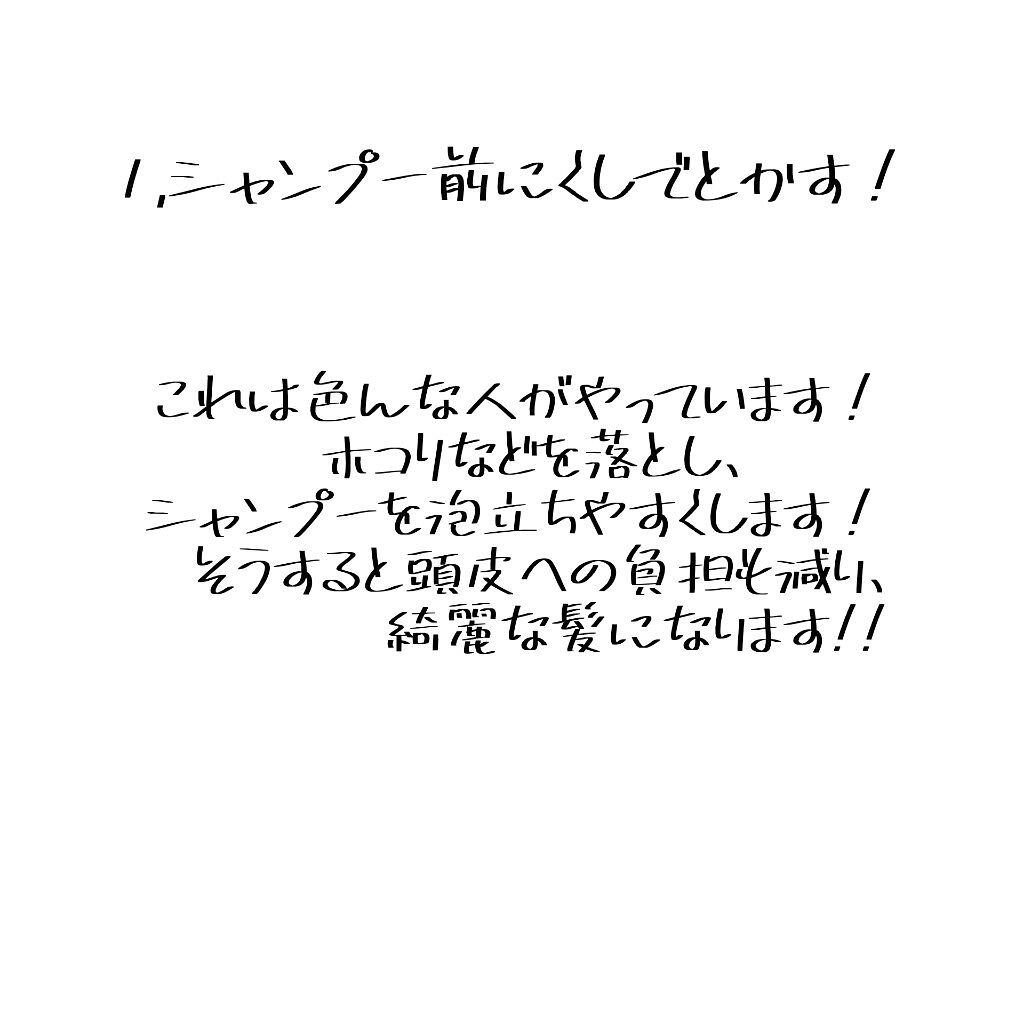 1,シャンプー前にくしでとかす!
これは色んな人がやっています!
ホコリなどを落とし、
シャンプーを泡立ちやすくします!
そうすると頭皮への負担も減り、
綺麗な髪になります!!